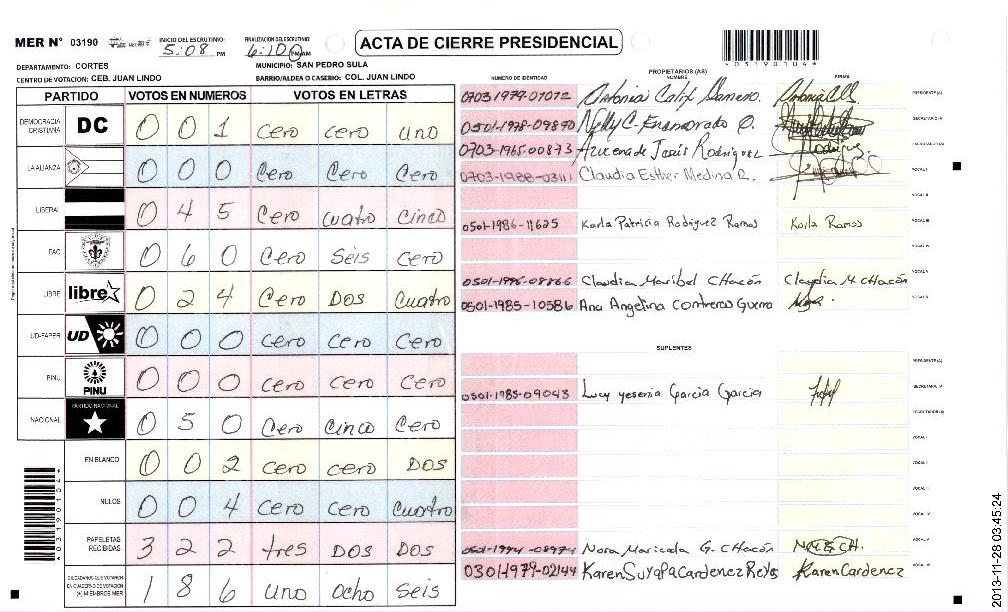 MER N° 03190 INICIO DEL ESCRUTINIO: 5:08 PM FINALIZACION DEL ESCRUTINIO: 6:10 PM
ACTA DE CIERRE PRESIDENCIAL
DEPARTAMENTO: CORTES MUNICIPIO: SAN PEDRO SULA
CENTRO DE VOTACION: CEB. JUAN LINDO BARRIO/ALDEA O CASERIO: COL. JUAN LINDO
PARTIDO VOTOS EN NUMEROS VOTOS EN LETRAS
DEMOCRACIA CRISTIANA DC 0 0 1 cero cero uno
LA ALIANZA 0 0 0 Cero Cero Cero
LIBERAL 0 4 5 Cero cuatro cinco
PAC 0 6 0 Cero Seis cero
LIBRE libre 0 2 4 Cero DOS Cuatro
UD-FAPER UD 0 0 0 Cero Cero Cero
PINU PINU 0 0 0 Cero Cero Cero
NACIONAL PARTIDO NACIONAL 0 5 0 Cero Cinco Cero
EN BLANCO 0 0 2 cero cero DOS
NULOS 0 0 4 Cero Cero Cuatro
PAPELETAS RECIBIDAS 3 2 2 tres DOS DOS
CIUDADANOS QUE VOTARON EN CUADERNO DE VOTACION (+) MIEMBROS MER 1 8 6 uno ocho seis
NUMERO DE IDENTIDAD PROPIETARIOS (AS) NOMBRE FIRMA
0703-1979-01072 Antonia Calix PRESIDENTE(A)
0501-1978-09890 Nelly C. Enamorado O. SECRETARIO/A
0703-1965-00873 Azucena de Jesús Rodriguez ESCRUTADOR(A)
0703-1988-03111 Claudia Esther Medina R. VOCAL I
VOCAL II
0501-1986-11625 Karla Patricia Rodriguez Ramos Karla Ramos VOCAL III
VOCAL IV
Claudia Maribel CHacón Claudia M. CHacón VOCAL V
0501-1985-10586 Ana Angelina Contreras Guerro
SUPLENTES
PRESIDENTE(A)
0501-1985-09043 Lucy yesenia Garcia Garcia SECRETARIO/A
ESCRUTADOR(A)
VOCAL I
VOCAL II
VOCAL III
VOCAL IV
0501-1994-08974 Nora Maricela G. CHacón N.M.G.CH. VOCAL V
0301-1979-02144 Karen Suyapa Cardenez Reyes Karen Cardenez
2013-11-28 03:45:24